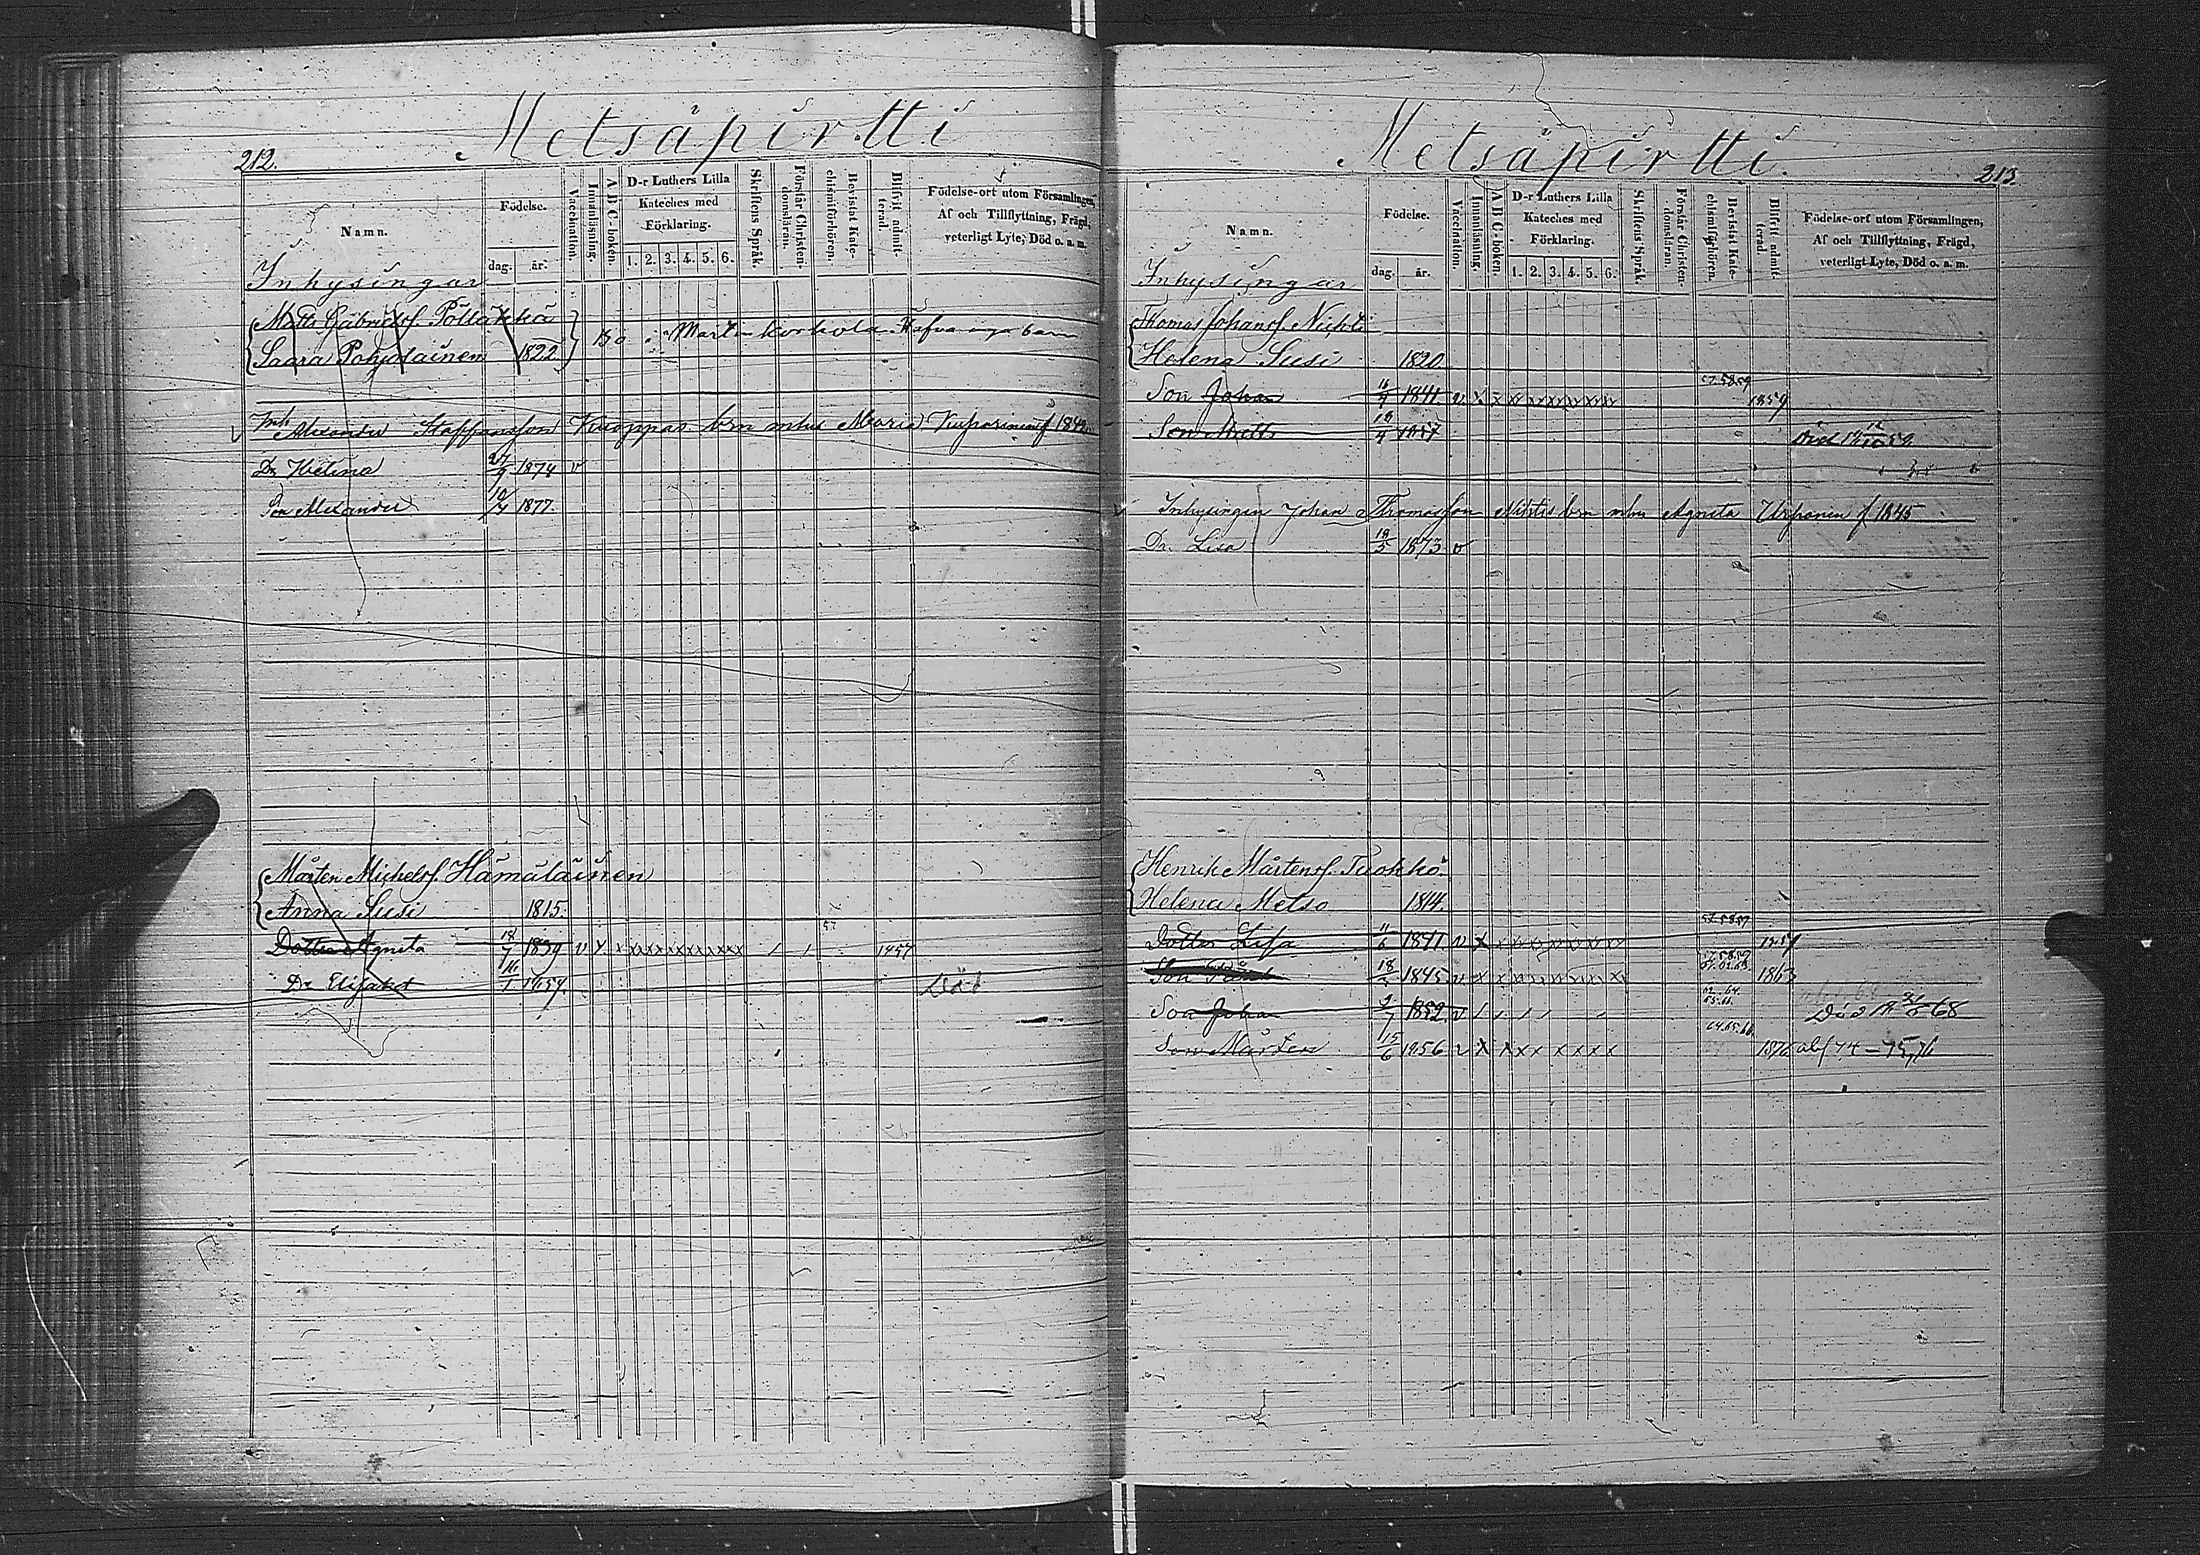 212.
Metsäpirtti
Namn.
Födelse.
dag.
år.
Vaccination.
Innanläsning.
A B C-boken.
D-r Luthers Lilla
Kateches med
Förklaring.
1. 2. 3. 4. 5. 6.
Skriftens Språk.
Förstår Christen-
domsläran.
Bevistat Kate-
chismiförhören.
Blifvit admit-
terad.
Födelse-ort utom Församlingen,
Af och Tillflyttning, Frägd,
veterligt Lyte, Död o. a. m.
Inhysingar
Matts Gabrielsf. Pöllakkä
Saara Pohjolainen 1822
Bo
Inh Alexander Staffansson Kuoppas brn mhu Maria Kuparinen f 1842
Dr. Helena 27/9 1874 v
Son Alexander 10/4 1877
Mårten Michelsf. Hämäläinen
Anna Susi 1815.
57
Dotter Agneta 18/7 1839 v x x x x x x x x x x 1857
Dr Elisabet 1857. Död
213.
Metsäpirtti.
Namn.
Födelse.
dag.
år.
Vaccination.
Innanläsning.
A B C-boken.
D-r Luthers Lilla
Kateches med
Förklaring.
1. 2. 3. 4. 5. 6.
Skriftens Språk.
Förstår Christen-
domsläran.
Bevistat Kate-
chismiförhören.
Blifvit admit-
terad.
Födelse-ort utom Församlingen,
Af och Tillflyttning, Frägd,
veterligt Lyte, Död o. a. m.
Inhysingar
Thomas Johansf. Nikti
Helena Susi 1820
57.58.59
Son Johan 1841. v. x x x x x x x x 1859
Son Matts 18/4 1857
Inhysingen Johan Thomasson Niktis brn mhu Agneta Urpanen f 1845
Dr. Lisa 18/5 1873 v
Henrik Mårtensf. Tuokko.
Helena Metso 1814.
57.58.59
Dotter Lisa 11/6 1841 v x x x x x x x x
Son 1845. v x x x x x x x x 1863
Son Johan 2/7 1852. v Död 68
64.65.66.
Son Mårten 15/6 1856 v x x x x x x x x 1876